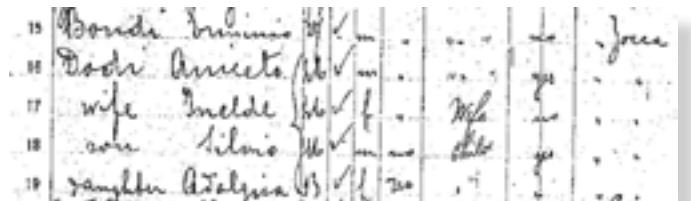 15 Bondi Erminio ✓ m " " " no " Zocca
16 Dodi Aniceto ✓ m " " " yes " "
17 wife Imelde ✓ f " Wife no " "
18 son Silvio ✓ m no yes " "
19 daughter Adalgisa ✓ f no " "